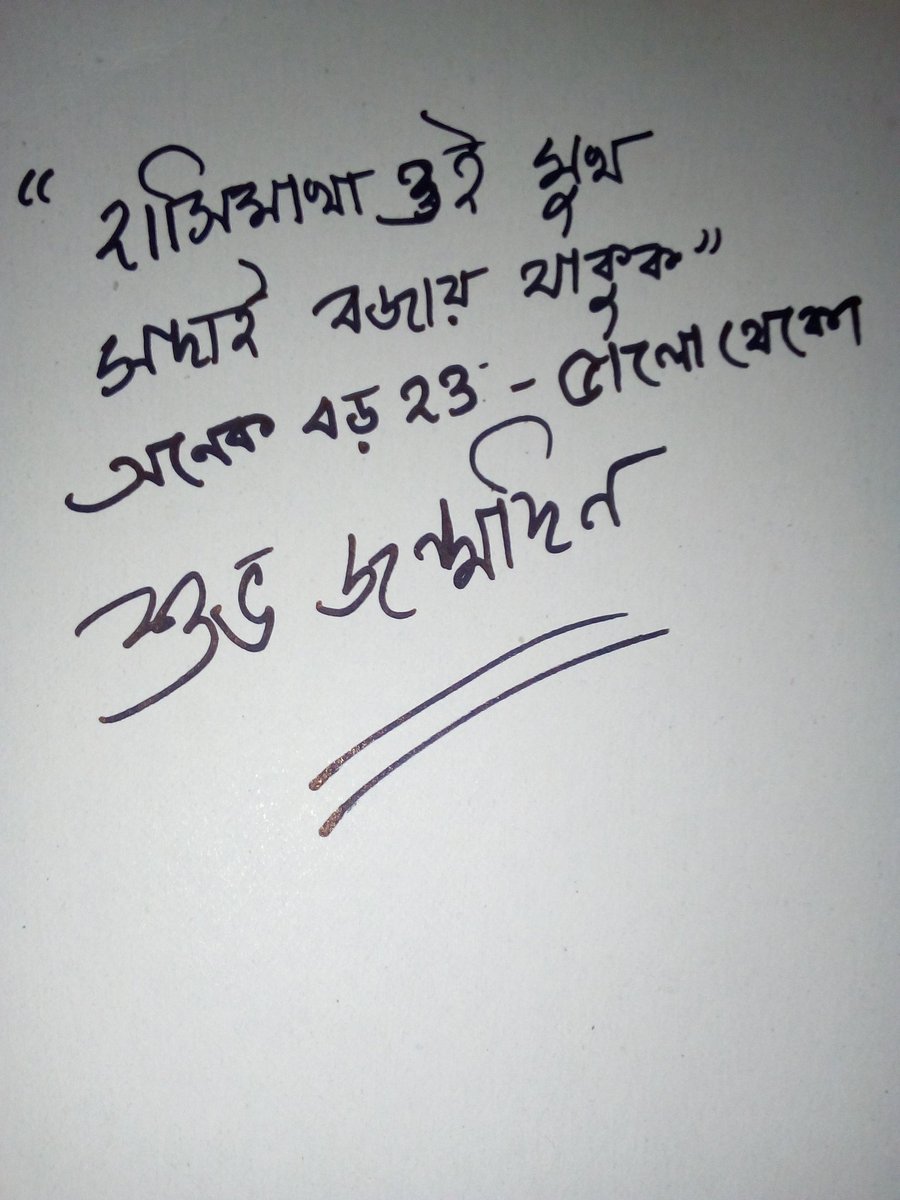 “ হাসিমাখা ওই মুখ
সদাই বজায় থাকুক”
অনেক বড় হও - ভালো থেকো
শুভ জন্মদিন